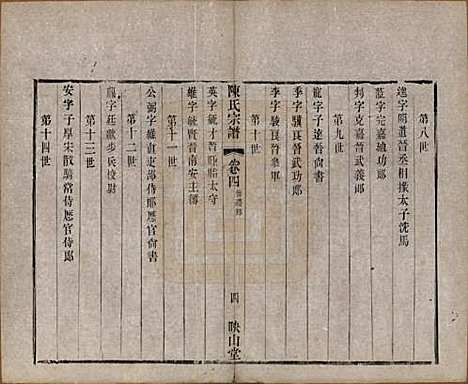 第八世
逵字閒道晉丞相掾太子洗馬
蕋字完嘉城功郎
判字克嘉晉武義郎
第九世
寵字子逵晉尙書
季字驥良晉武功郎
李字駿良晉叅軍
第十世
陳氏宗譜
卷四
四
映山堂
英字毓才晉盱眙太守
維字毓賢晉南安主簿
第十一世
公弼字維直吏部侍郎歷官尙書
第十二世
龐字莊猷步兵校尉
第十三世
安字子厚宋散騎常侍歷官侍郎
第十四世